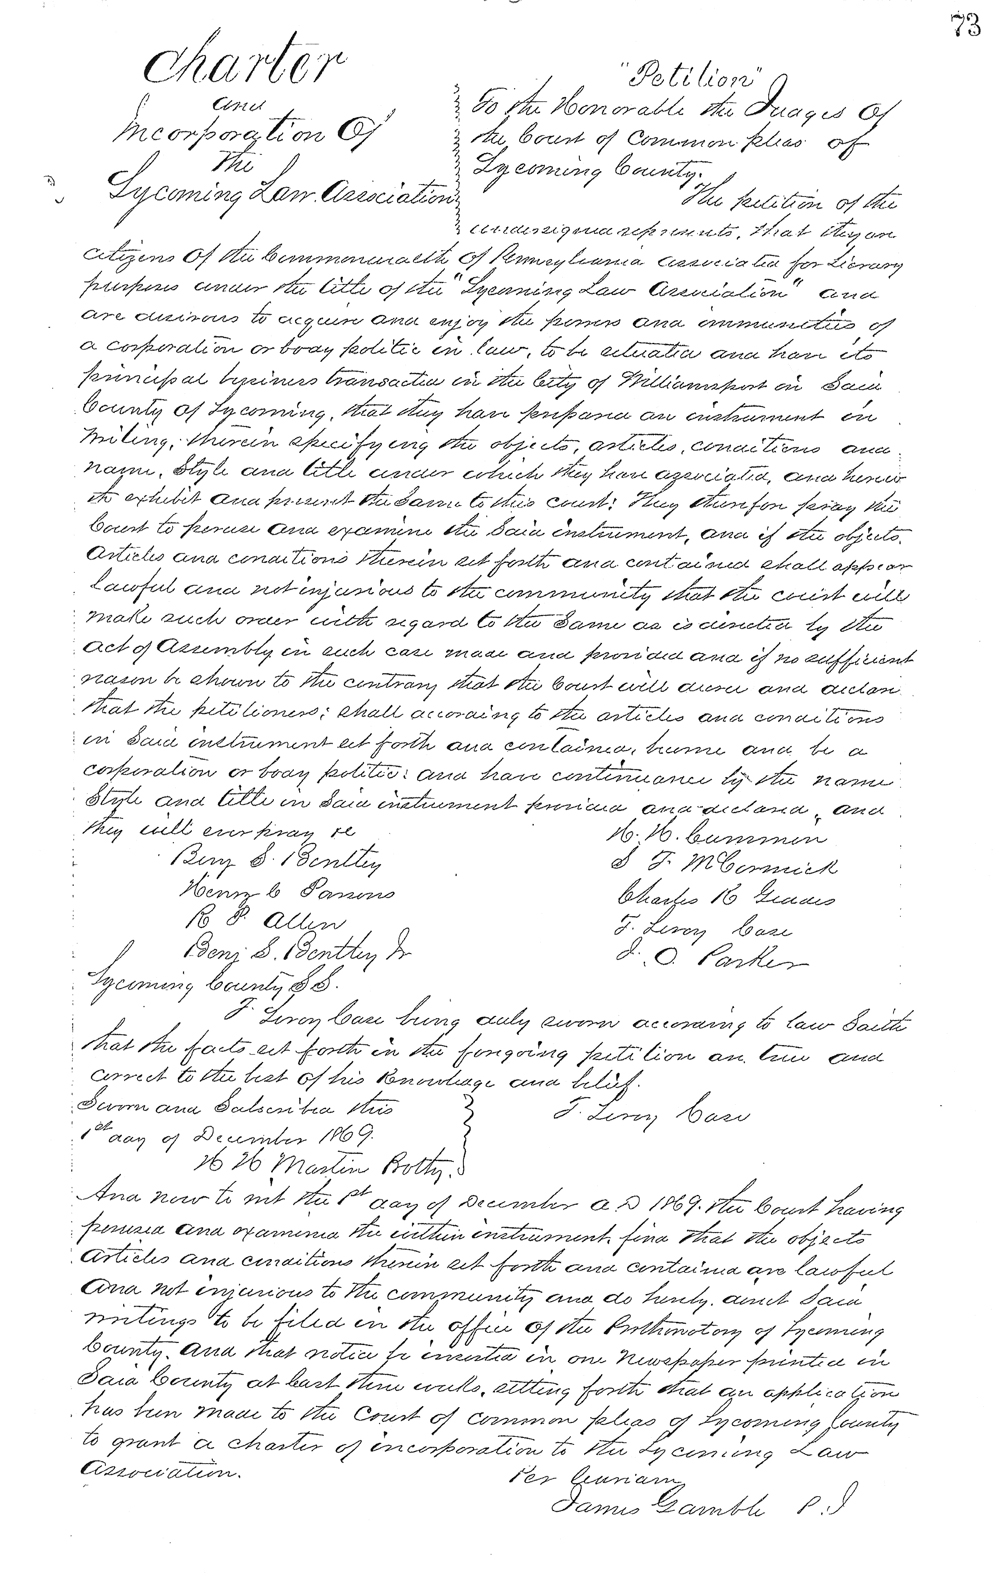 73
Charter
and
Incorporation Of
The
Lycoming Law Association
"Petition"
To the Honorable the Judges Of
the Court of Common pleas of
Lycoming County.
The petition of the
undersigned represents, that they are
citizens Of the Commonwealth of Pennsylvania associated for Literary
purposes under the title of the "Lycoming Law Association" and
are desirous to acquire and enjoy the powers and immunities of
a corporation or body politic in law, to be situated and have its
principal business transacted in the City of Williamsport in Said
County of Lycoming, that they have prepared an instrument in
Writing, therein specifying the objects, articles, conditions and
name, Style and title under which they have associated, and herew
ith exhibit and present the Same to this court: They therefore pray the
Court to peruse and examine the Said instrument, and if the objects.
articles and conditions therein set forth and contained shall appear
lawful and not injurious to the community that the court will
make such order with regard to the Same as is directed by the
act of Assembly in such case made and provided and if no sufficient
reason be shown to the contrary that the Court will decree and declare
that the petitioners; shall according to the articles and conditions
in Said instrument set forth and contained, become and be a
corporation or body politic: and have continuance by the name
Style and title in Said instrument provided and declared, and
they will ever pray &c
H. H. Cummin
Benj S. Bentley
S T. McCormick
Henry C Parsons
Charles K Geddes
R P. Allen
F. Leroy Case
Benj S. Bentley Jr
J. O. Parker
Lycoming County SS.
F. Leroy Case being duly sworn according to law Saith
that the facts set forth in the foregoing petition are true and
correct to the best of his Knowledge and belief.
Sworn and Subscribed this
F. Leroy Case
1st day of December 1869.
H H Martin Prothy.
And now to wit the 1st day of December A.D 1869. the Court having
perused and examined the within instrument, find that the objects
Articles and conditions therein set forth and contained are lawful
And not injurious to the community and do hereby. direct Said
writings to be filed in the office of the Prothonotory of Lycoming
County. and that notice be inserted in one Newspaper printed in
Said County at least three weeks, setting forth that an application
has been made to the Court of Common pleas of Lycoming County
to grant a charter of incorporation to the Lycoming Law
Association.
Per Curiam
James Gamble P. J